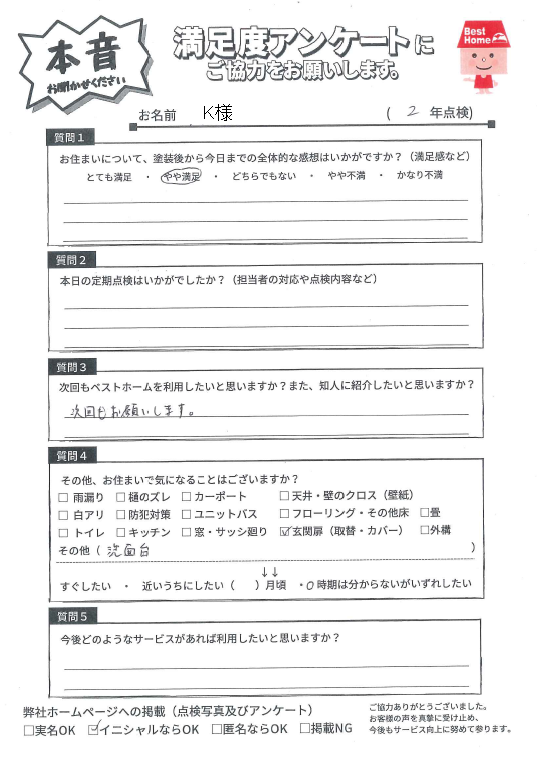 本音
お聞かせください
満足度アンケートに
ご協力をお願いします。
Best Home
お名前 K様 ( 2 年点検)
質問1
お住まいについて、塗装後から今日までの全体的な感想はいかがですか？（満足感など）
とても満足 ・ やや満足 ・ どちらでもない ・ やや不満 ・ かなり不満
質問2
本日の定期点検はいかがでしたか？（担当者の対応や点検内容など）
質問3
次回もベストホームを利用したいと思いますか？また、知人に紹介したいと思いますか？
次回もお願いします。
質問4
その他、お住まいで気になることはございますか？
□ 雨漏り □ 樋のズレ □ カーポート □ 天井・壁のクロス（壁紙）
□ 白アリ □ 防犯対策 □ ユニットバス □ フローリング・その他床 □畳
□ トイレ □ キッチン □ 窓・サッシ廻り ☑玄関扉（取替・カバー） □外構
その他（ 洗面台 ）
↓↓
すぐしたい ・ 近いうちにしたい（ ）月頃 ・○時期は分からないがいずれしたい
質問5
今後どのようなサービスがあれば利用したいと思いますか？
弊社ホームページへの掲載（点検写真及びアンケート）
□実名OK ☑イニシャルならOK □匿名ならOK □掲載NG
ご協力ありがとうございました。
お客様の声を真摯に受け止め、
今後もサービス向上に努めて参ります。